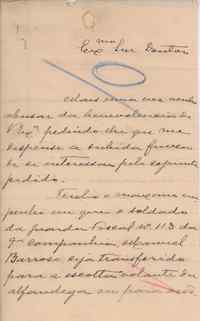 Ex.mo Snr Doutor
Mais uma vez venho
abusar da benevolencia de
V. Ex.ª pedindo-lhe que me
dispense a subida fineza
de se interessar pelo seguinte
pedido.
Tenho o maximo em-
penho em que o soldado
da guarda fiscal nº 113 da
4ª companhia, Manuel
Barroso seja transferido
para a escolta volante da
alfandega ou para